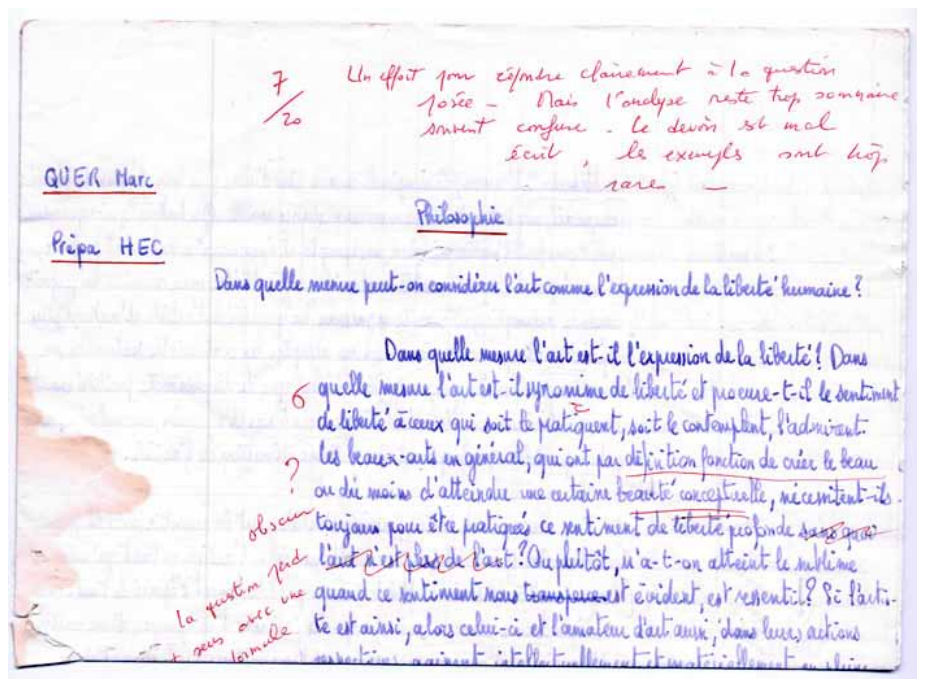 7
/20
Un effort pour répondre clairement à la question
posée - Mais l'analyse reste trop sommaire
souvent confuse - Le devoir est mal
écrit, les exemples sont trop
rares -
QUER Marc
Philosophie
Prépa HEC
Dans quelle mesure peut-on considérer l'art comme l'expression de la liberté humaine?
Dans quelle mesure l'art est-il l'expression de la liberté? Dans
quelle mesure l'art est-il synonime de liberté et procure-t-il le sentiment
de liberté à ceux qui soit le pratiquent, soit le contemplent, l'admirent.
?
les beaux-arts en général, qui ont par définition fonction de créer le beau
ou du moins d'atteindre une certaine beauté conceptuelle, nécessitent-ils
obscur
toujours pour être pratiqués ce sentiment de liberté profonde sans quoi
l'art n'est pas de l'art? Ou plutôt, n'a-t-on atteint le sublime
la question perd
quand ce sentiment nous est évident, est ressenti? Si l'arti-
sens avec une
te est ainsi, alors celui-ci et l'amateur d'art aussi, dans leurs actions
formule
respectives, agissent intellectuellement et matériellement en pleine